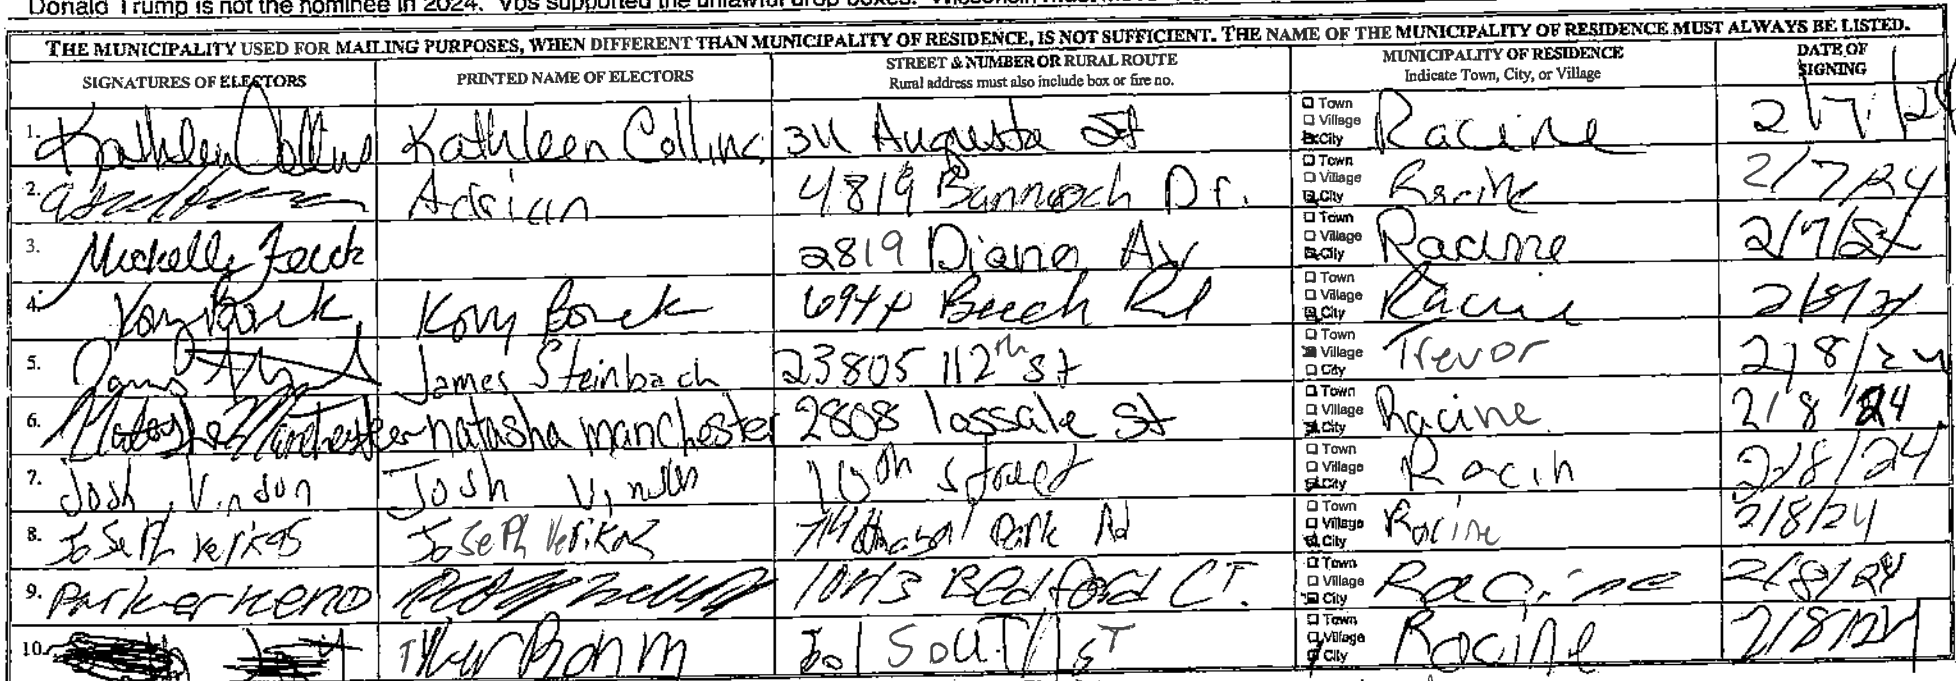 Donald Trump is not the nominee in 2024. Vos supported the unlawful drop boxes. Wisconsin must
THE MUNICIPALITY USED FOR MAILING PURPOSES, WHEN DIFFERENT THAN MUNICIPALITY OF RESIDENCE, IS NOT SUFFICIENT. THE NAME OF THE MUNICIPALITY OF RESIDENCE MUST ALWAYS BE LISTED.
SIGNATURES OF ELECTORS PRINTED NAME OF ELECTORS STREET & NUMBER OR RURAL ROUTE Rural address must also include box or fire no. MUNICIPALITY OF RESIDENCE Indicate Town, City, or Village DATE OF SIGNING
1. Kathleen Collins Kathleen Collins 311 Augusta St Town Village City Racine 2/7/24
2. Adrian 4819 Dr. Town Village City Racine 2/7/24
3. Michelle 2819 Diane Av Town Village City Racine 2/7/24
4. Kory Kory 6944 Beech Rd Town Village City Racine 2/8/24
5. James Steinbach 23805 112th St Town Village City Trevor 2/8/24
6. Natasha Manchester natasha manchester 2808 lassale St Town Village City Racine 2/8/24
7. Josh Vinson Josh Vinson 10th Street Town Village City Racin 2/8/24
8. JoSePh Verikas JoSePh Verikas Park Rd Town Village City Racine 2/8/24
9. Parker Keno Bedford CT. Town Village City Racine 2/8/24
10. Tyler Bohm SOUTH ST Town Village City Racine 2/8/24